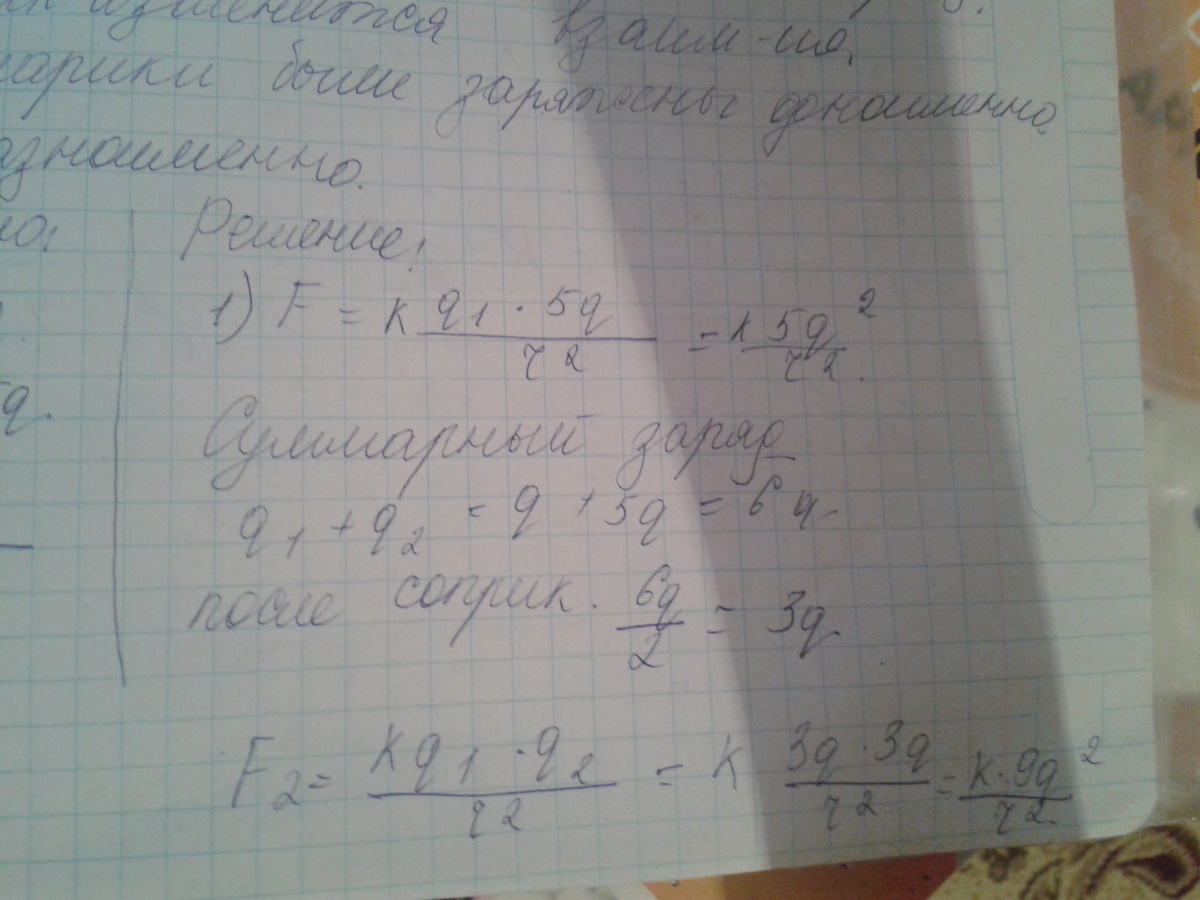 изменится взаим-ия,
шарики были заряжены одноименно
разноименно.
Решение:
1) F = k q₁ · 5q / r² = k 5q² / r².
q.
Суммарный заряд
q₁ + q₂ = q + 5q = 6q.
после соприк. 6q / 2 = 3q
F₂ = k q₁ · q₂ / r² = k 3q · 3q / r² = k · 9q² / r²